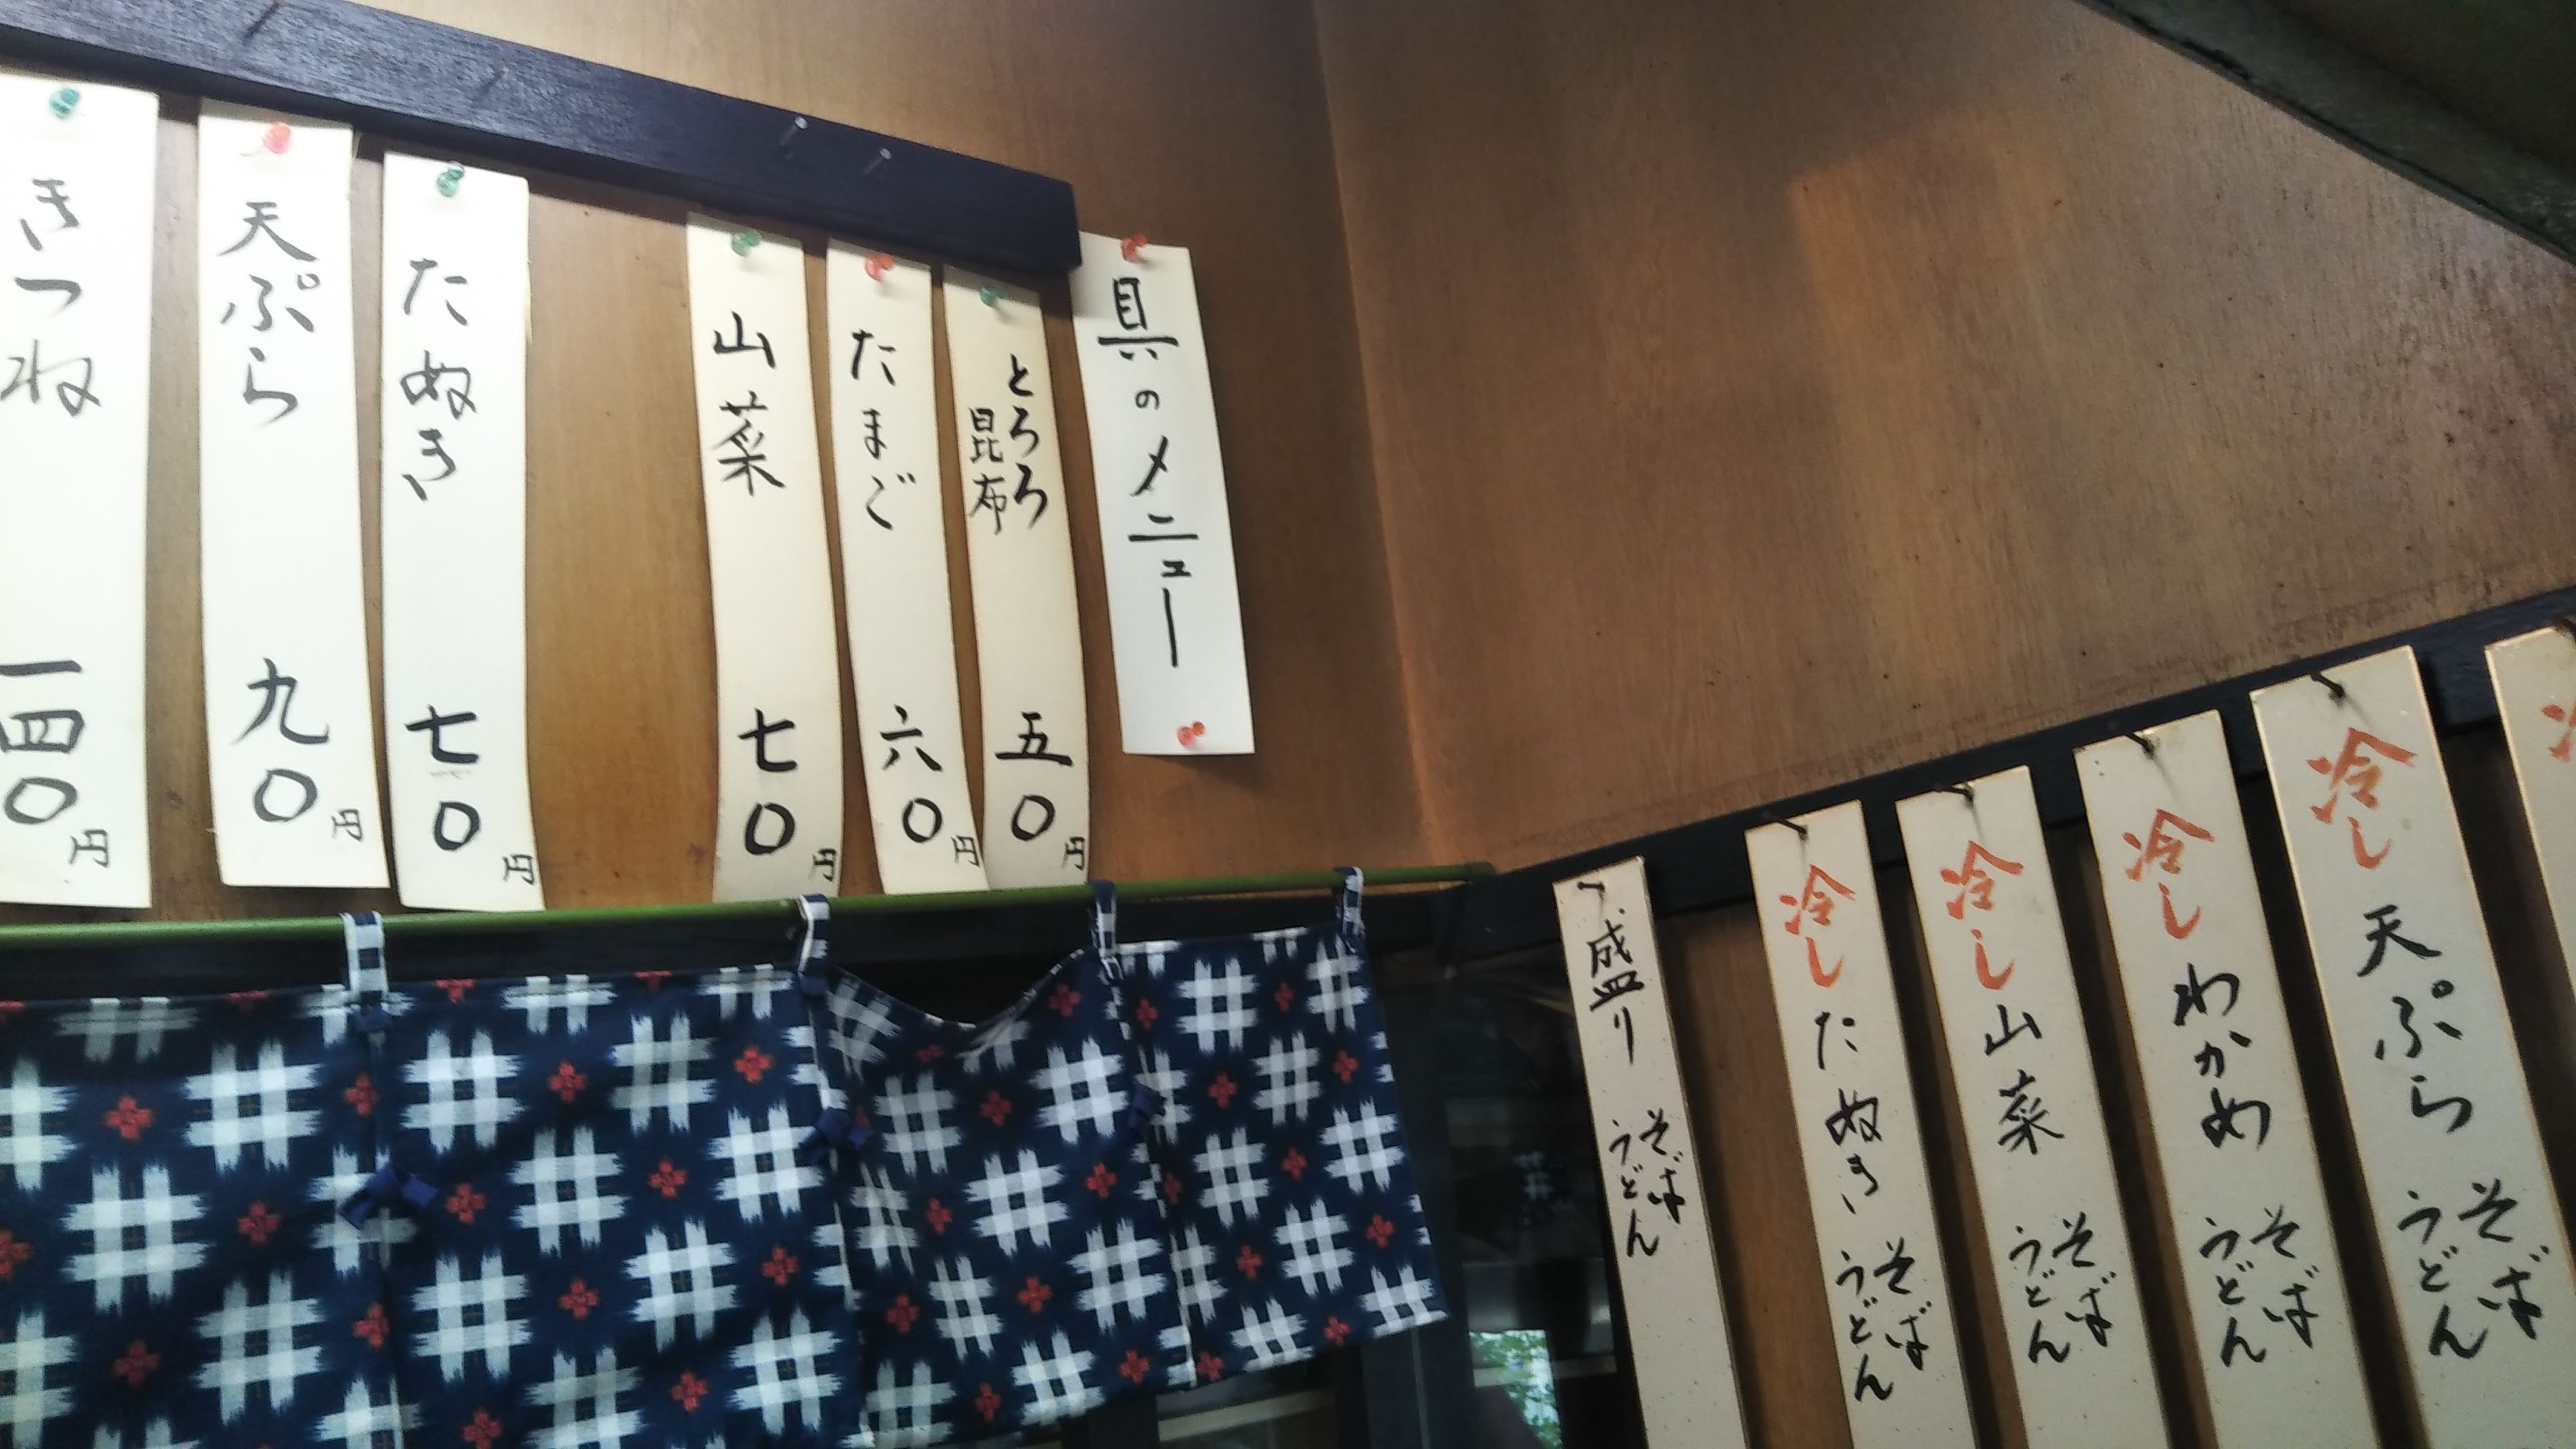 具のメニュー
とろろ昆布 五〇円
たまご 六〇円
山菜 七〇円
たぬき 七〇円
天ぷら 九〇円
きつね 一四〇円
冷し天ぷら そば うどん
冷しわかめ そば うどん
冷し山菜 そば うどん
冷したぬき そば うどん
盛り そば うどん